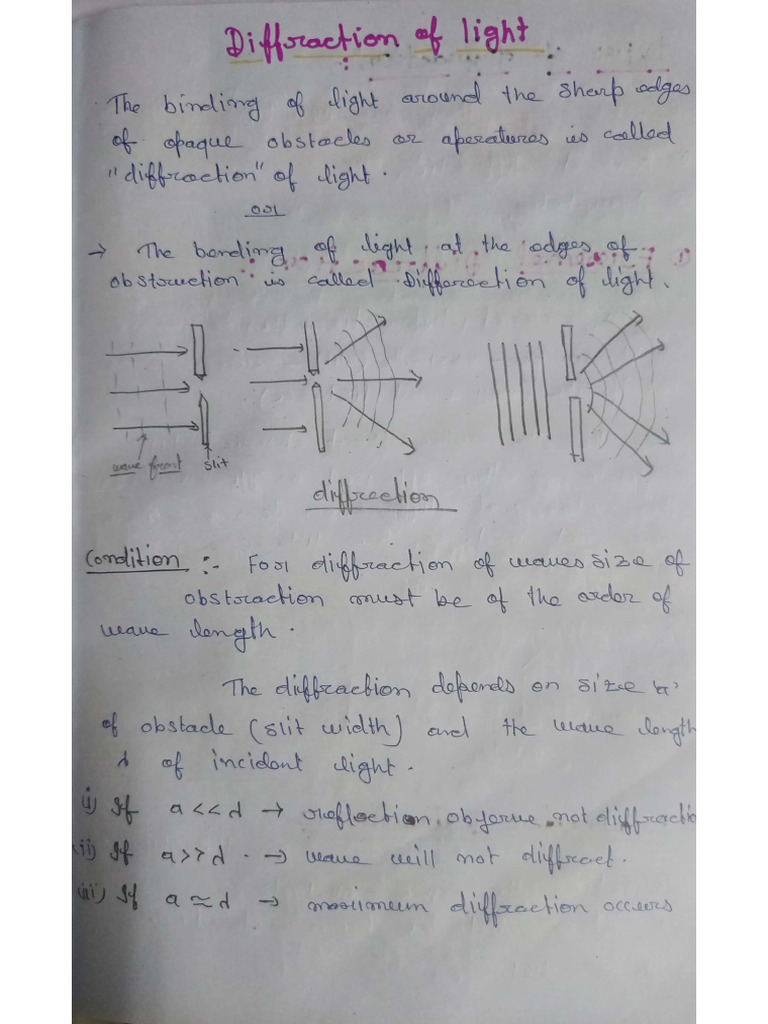 Diffraction of light
The binding of light around the sharp edges
of opaque obstacles or aperatures is called
"diffraction" of light.
or
→ The bending of light at the edges of
obstruction is called Differection of light.
wave front slit
diffrection
Condition :- For diffraction of waves size of
obstraction must be of the order of
wave length.
The diffraction depends on size 'a'
of obstacle (slit width) and the wave length
λ of incident light.
(i) If a << λ → reflection observe not diffractio
(ii) If a >> λ . → wave will not diffract.
(iii) If a ≃ λ → maximum diffraction occurs